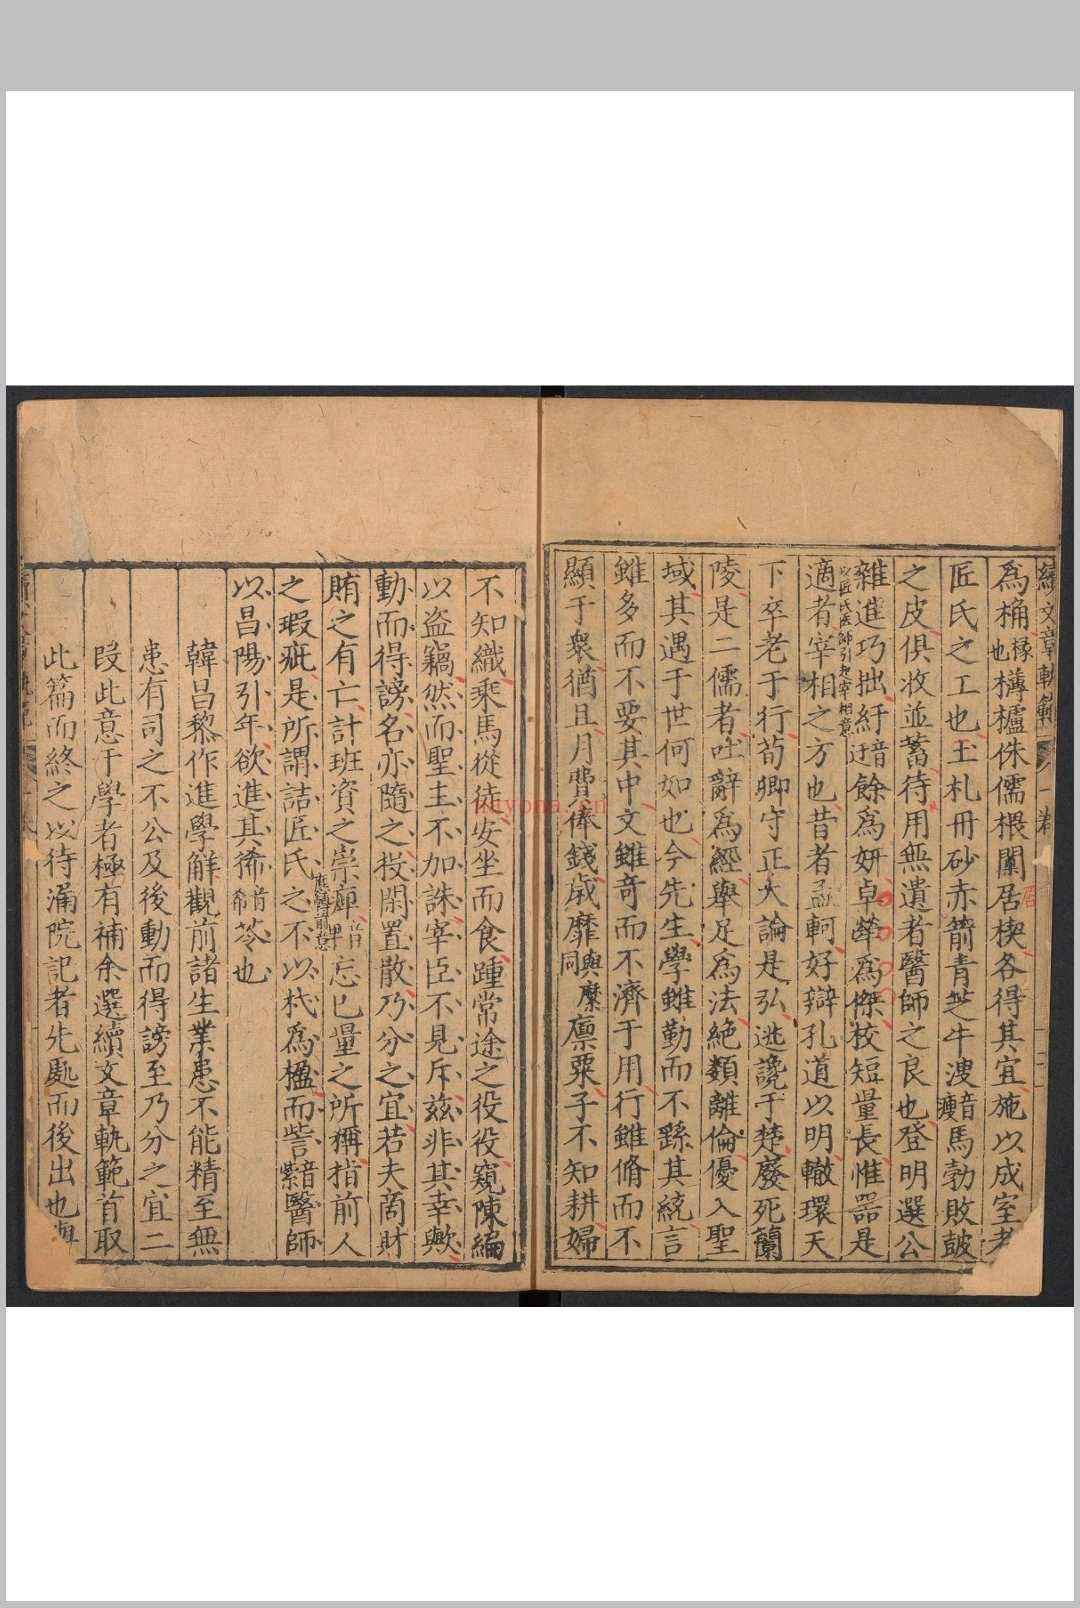 續文章軌範 一卷
爲桷橡也欂櫨侏儒椳闑居楔各得其宜施以成室者
匠氏之工也玉札丹砂赤箭青芝牛溲音瘦馬勃敗鼓
之皮俱收並蓄待用無遺者醫師之良也登明選公
雜進巧拙紆音迂餘爲妍卓犖爲傑校短量長惟器是
適者宰相之方也昔者孟軻好辯孔道以明轍環天
以匠氏医師引起宰相意
下卒老于行荀卿守正大論是弘逃讒于楚廢死蘭
陵是二儒者吐辭爲經舉足爲法絕類離倫優入聖
域其遇于世何如也今先生學雖勤而不繇其統言
雖多而不要其中文雖奇而不濟于用行雖脩而不
顯于衆猶且月費俸錢歲靡與糜同廩粟子不知耕婦
不知織乘馬從徒安坐而食踵常途之役役窺陳編
以盗竊然而聖主不加誅宰臣不見斥茲非其幸歟
動而得謗名亦隨之投閑置散乃分之宜若夫商財
賄之有亡計班資之崇庳音卑忘已量之所稱指前人
應轉前意
之瑕疵是所謂詰匠氏之不以杙爲楹而訾音紫醫師
以昌陽引年欲進其豨音希苓也
韓昌黎作進學解觀前諸生業患不能精至無
患有司之不公及後動而得謗至乃分之宜二
叚此意于學者極有補余選續文章軌範首取
此篇而終之以待漏院記者先處而後出也與
kayona.cn